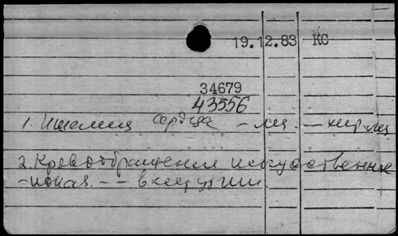 19.12.83 КС
34679
43556
1. Ишемия сердца – – хир
2. Кровообращение искусственное
– – – в хирургии